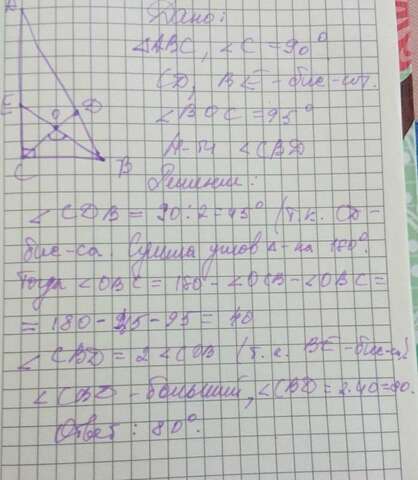 A
E
O
D
C
B
Дано:
△ABC, ∠C = 90°
CD, BE - бис-сы.
∠BOC = 95°
Н-ти ∠CBD
Решение:
∠CDB = 90:2 = 45° (т.к. CD -
бис-са. Сумма углов △-ка 180°.
Тогда ∠OBC = 180 - ∠OCB - ∠OBC =
= 180 - 45 - 95 = 40
∠CBD = 2∠COB (т.к. BE - бис-са)
∠CBD - больший, ∠CBD = 2·40 = 80.
Ответ: 80°.